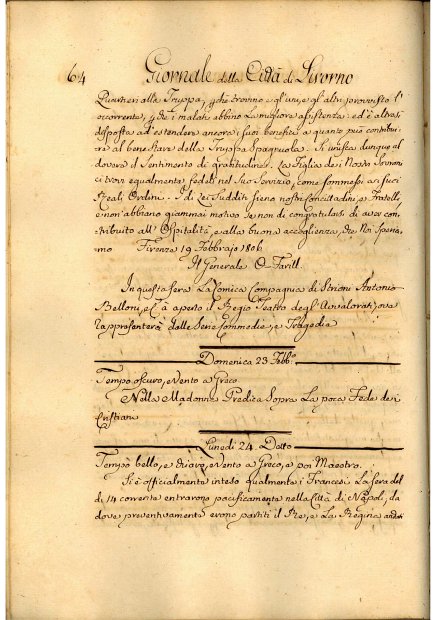 64 Giornale della Città di Livorno
Quartieri alla Truppa, che trovino e gl'uni, e gl'altri provvisto l'
occorrente, che i malati abbino la migliore assistenza ed è altresi
disposta ad estendere ancora i suoi benefici a quanto può contribui-
re al benestare della Truppa Spagnuola. Si unisca dunque al
dovere il Sentimento di gratitudine. La Figlia dei Nostri Sovrani
ci trovi equalmente fedeli nel Suo Servizio, come sommessi a suoi
Reali Ordini. I di Lei Sudditi sieno nostri Concittadini, e Fratelli,
e non abbiano giammai motivo se non di congratularsi di aver con-
tribuito all'Ospitalità, e alla buona accoglienza, che Noi Speria-
mo Firenze 19 Febbrajo 1806
Il Generale O-Farill.
In questa sera La Comica Compagnia di Strioni Antonio
Belloni, hà aperto il Regio Teatro degl'Avvalorati, ova
rappresenterà delle Serie Commedie, e Tragedie
Domenica 23 Febb.º
Tempo oscuro, e Vento a Greco
Nella Madonna Predica Sopra La poca Fede dei
Cristiani
Lunedì 24 Detto
Tempo bello, e chiaro, e Vento a Greco, e poi Maestro.
Si è officialmente inteso qualmente i Francesi La sera del
dì 14 corrente entrarono pacificamente nella Città di Napoli, da
dove preventivamente erono partiti il Re, e La Regina andati